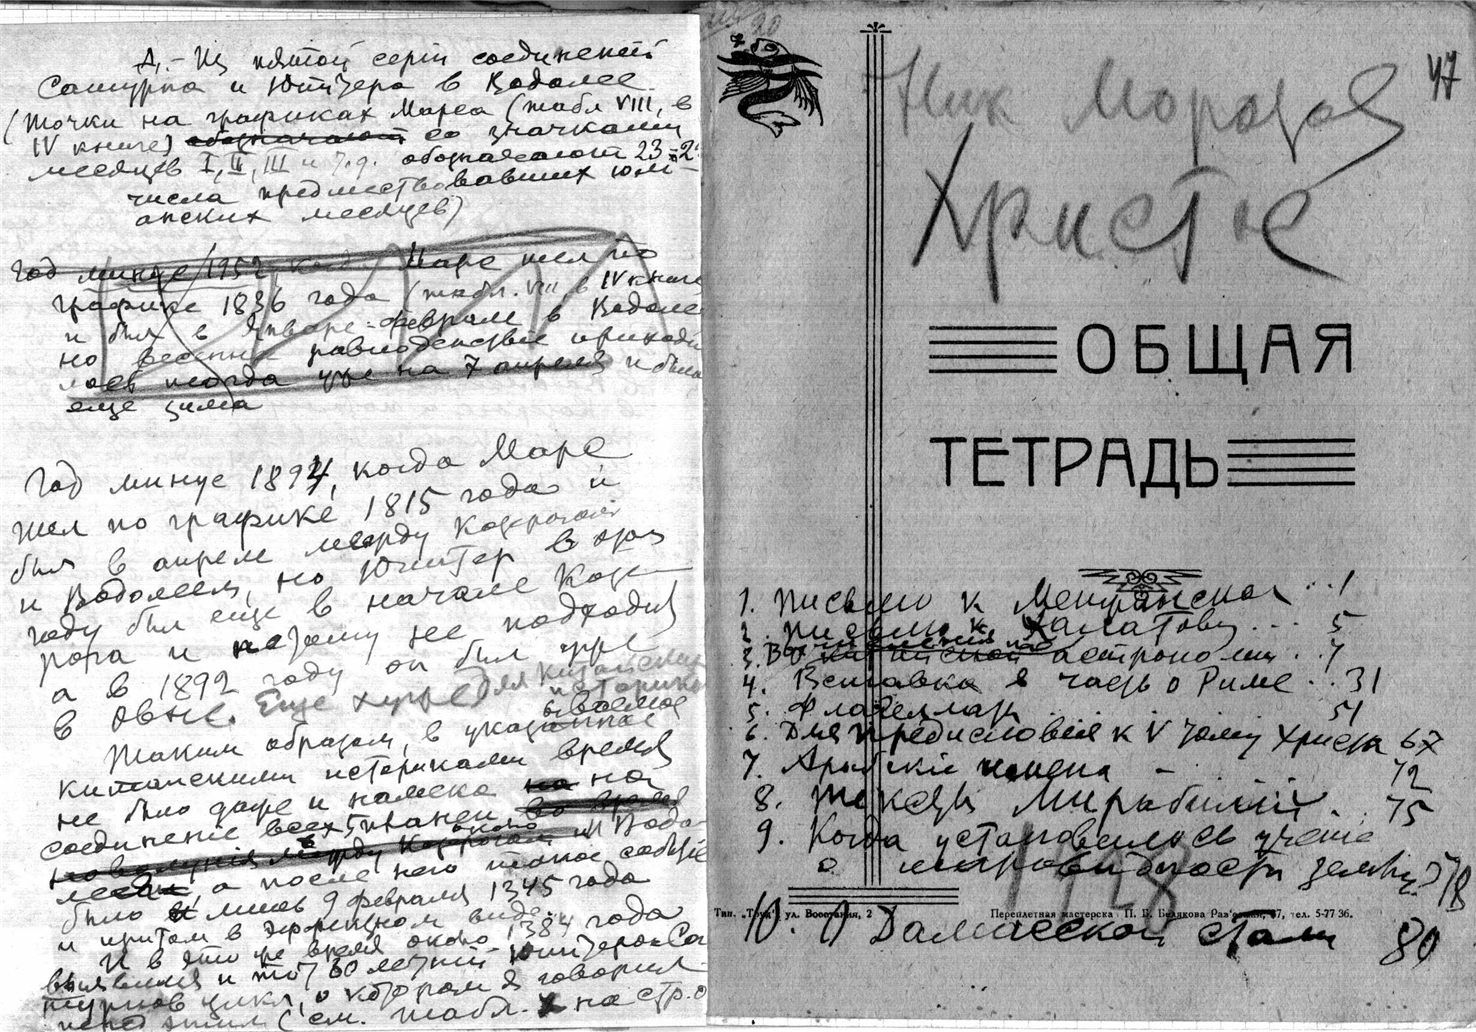 Д.- Из пятой серии соединений
Сатурна и Юпитера в Водолее
(Точки на графиках Марса (табл VIII, в
IV книге) обозначают со значками
месяцев I, II, III и т.д. обозначают 23-2
числа предшествовавших юли-
анских месяцев)
Год минус 1952, когда Марс шел по
графике 1836 года (табл. VIII в IV книге
и был в Январе-феврале в Водолее
но весеннее равноденствие приходи
лось тогда уже на 7 апреля и была
еще зима
Год минус 1894, когда Марс
шел по графике 1815 года и
был в апреле между Козерогом
и Водолеем, но Юпитер в этом
году был еще в начале Козе-
рога и потому не подходил
а в 1892 году он был уже
в Овне. Еще хуже для китайских
историков
Таким образом, в указанное
китайскими историками время
не было даже и намека на на
соединение всех планет во время
новолуния между Козерогом и Водо-
леем, а после него такое событие
было лишь 9 февраля 1345 года
и притом в эффектном виде
И в это же время около 1384 года
выявился и тот 60 летний Юпитеро-Са
турнов цикл, о котором я говорил
перед этим (см. табл. X на стр.
20
47
Ник Морозов
Христос
ОБЩАЯ
ТЕТРАДЬ
1. Письмо к Менжинской . . 1
2. Письмо к Халатову . . . 5
3. О китайской астрономии . 7
4. Вставка в часть о Риме . . 31
5. 51
6. Для предисловия к V тому Христа 67
7. Арабские имена - 72
8. Тексты Мирабилий . 75
9. Когда установилось учение
о шаровидности земли? 78
1928
Тип. „Труд", ул. Восстания, 2
Переплетная мастерская П. В. Белякова Раз'езжая, 37, тел. 5-77 36.
10. О Дамасской стали 80